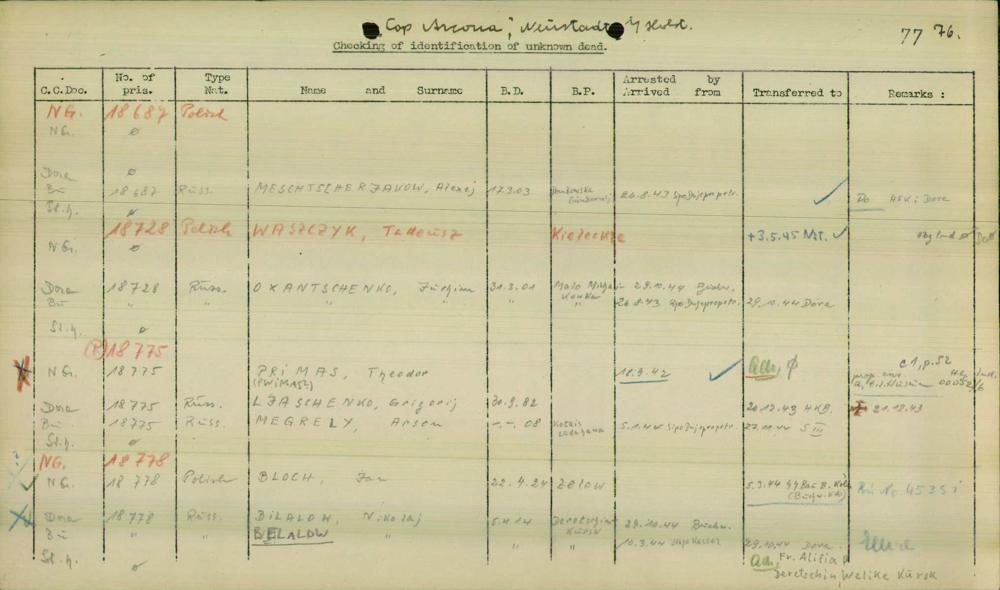 "Cap Arcona", Neustadt i/ Holst.
77 76.
Checking of identification of unknown dead.
C.C.Doc. No. of pris. Type Nat. Name and Surname B.D. B.P. Arrested by Arrived from Transferred to Remarks :
NG. 18687 Polish
NG. ø
Dora ø
Bu 18687 Russ. MESCHTSCHERJAKOW, Alexej 17.3.03 26.8.43 Sipo Dnjepropetr. ✓ Do
St.H. ø
18728 Polish WASZCZYK, Tadeusz Kieleckie +3.5.45 Nst. ✓
NG. ø
Dora 18728 Russ. OXANTSCHENKO, 31.3.01 29.10.44 Buchw.
Bu " " " " " 26.8.43 Sipo Dnjepropetr. 29.10.44 Dora
St.H. ø
(P) 18775
NG. 18775 PRIMAS, Theodor 18.9.42 ✓ c1, p.52
(PWIMASZ)
Dora 18775 Russ. LJASCHENKO, Grigorij 30.9.82 20.12.43 HKB. 21.12.43
Bu 18775 Russ. MEGRELY, Arsen -.-. 08 5.1.44 Sipo Dnjepropetr. 27.11.44 S III
St.H. ø
NG. 18778
NG. 18778 Polish BLOCH, Jan 22.4.24 Zelow 5.3.44 Bu No. 45351
Dora 18778 Russ. BILALOW, Nikolaj 5.4.14 Kursk 29.10.44 Buchw.
Bu " " BELALOW " " " 10.3.44 Stapo Kassel 29.10.44 Dora.
St.H. ø Fr. Alifia
Welike Kursk